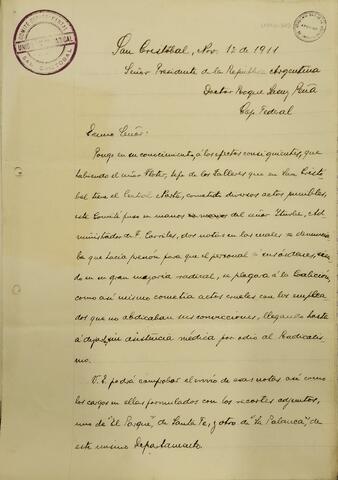 COMITÉ DEPARTAMENTAL
UNION RADICAL
SAN CRISTOBAL
San Cristóbal, Nov. 12 de 1911
Señor Presidente de la República Argentina
Doctor Roque Saenz Peña
Cap. Federal
Exmo. Señor:
Pongo en su conocimiento, á los efectos consiguientes, que
habiendo el señor jefe de los Talleres que en San Cristó
bal tiene el Central Norte, cometido diversos actos punibles,
este Comité puso en manos del señor Iturbe, Ad
ministrador de F. Carriles, dos notas en las cuales se denuncia
ba que hacía presión para que el personal á sus órdenes, sien
do en su gran mayoría radical, se plegara á la Coalición,
como así mismo cometía actos crueles con los emplea
dos que no abdicaban sus convicciones, llegando hasta
á dejar sin asistencia médica por odio al Radicalis
mo.
V. E. podrá comprobar el envío de esas notas así como
los cargos en ellas formulados con los recortes adjuntos,
uno de "El Parque", de Santa Fe, y otro de "La Palanca", de
este mismo Departamento.